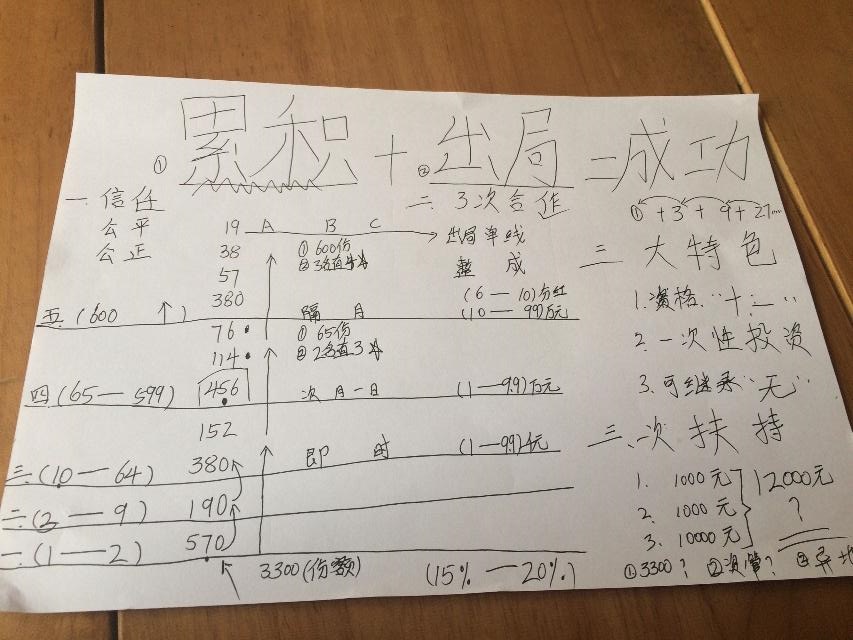 ① 累积 + ② 出局 = 成功
一. 信任
公平
公正
二. 3次合作
① + 3 + 9 + 27
19 A B C
38 ① 600份
出局单线
57
整成
380
(6—10)分红
五. (600 ↑) 隔月 (10—99)万元
76 ① 65份
114
456
四 (65—599) 次月一日 (1—9.9)万元
152
三. (10—64) 380 即时 (1—99)千元
二. (2—9) 190
一. (1—2) 570
3300 (份额) (15%—20%)
三 大特色
1. 资格 "十二"
2. 一次性投资
3. 可继承 "无"
三. 次扶持
1. 1000元
2. 1000元
3. 10000元
12000元
?
① 3300?